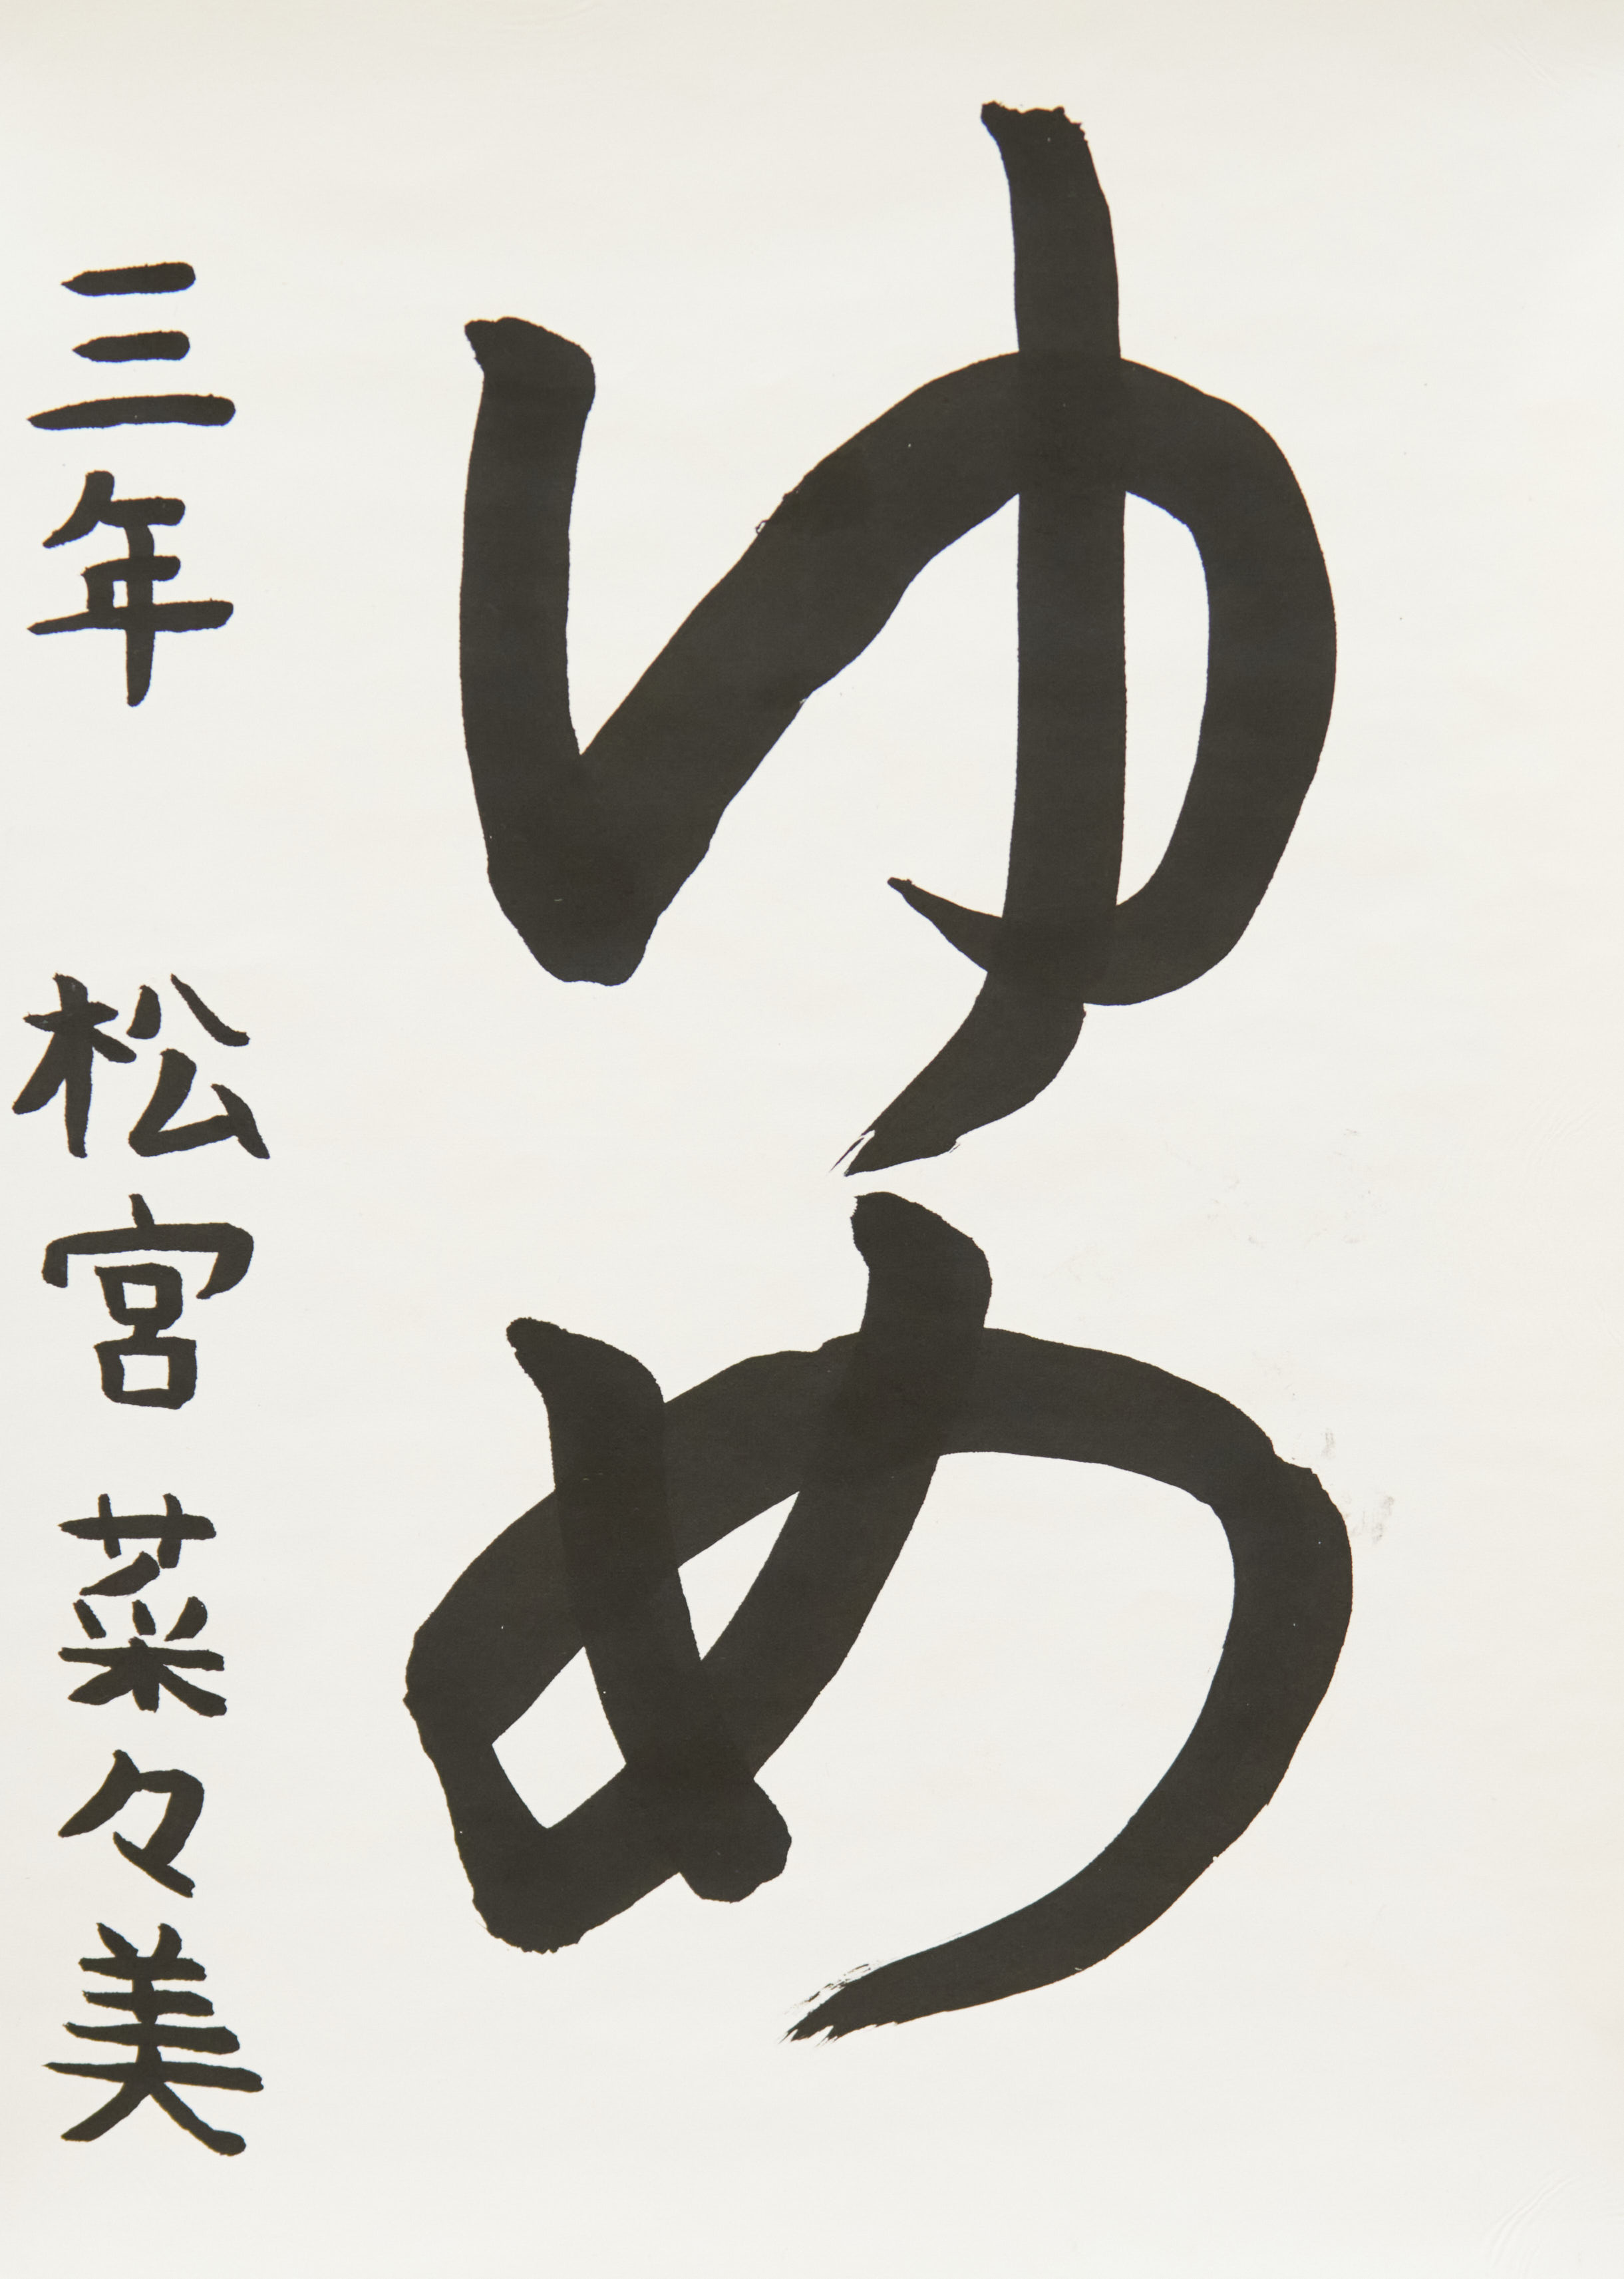 ゆめ
三年 松宮菜々美